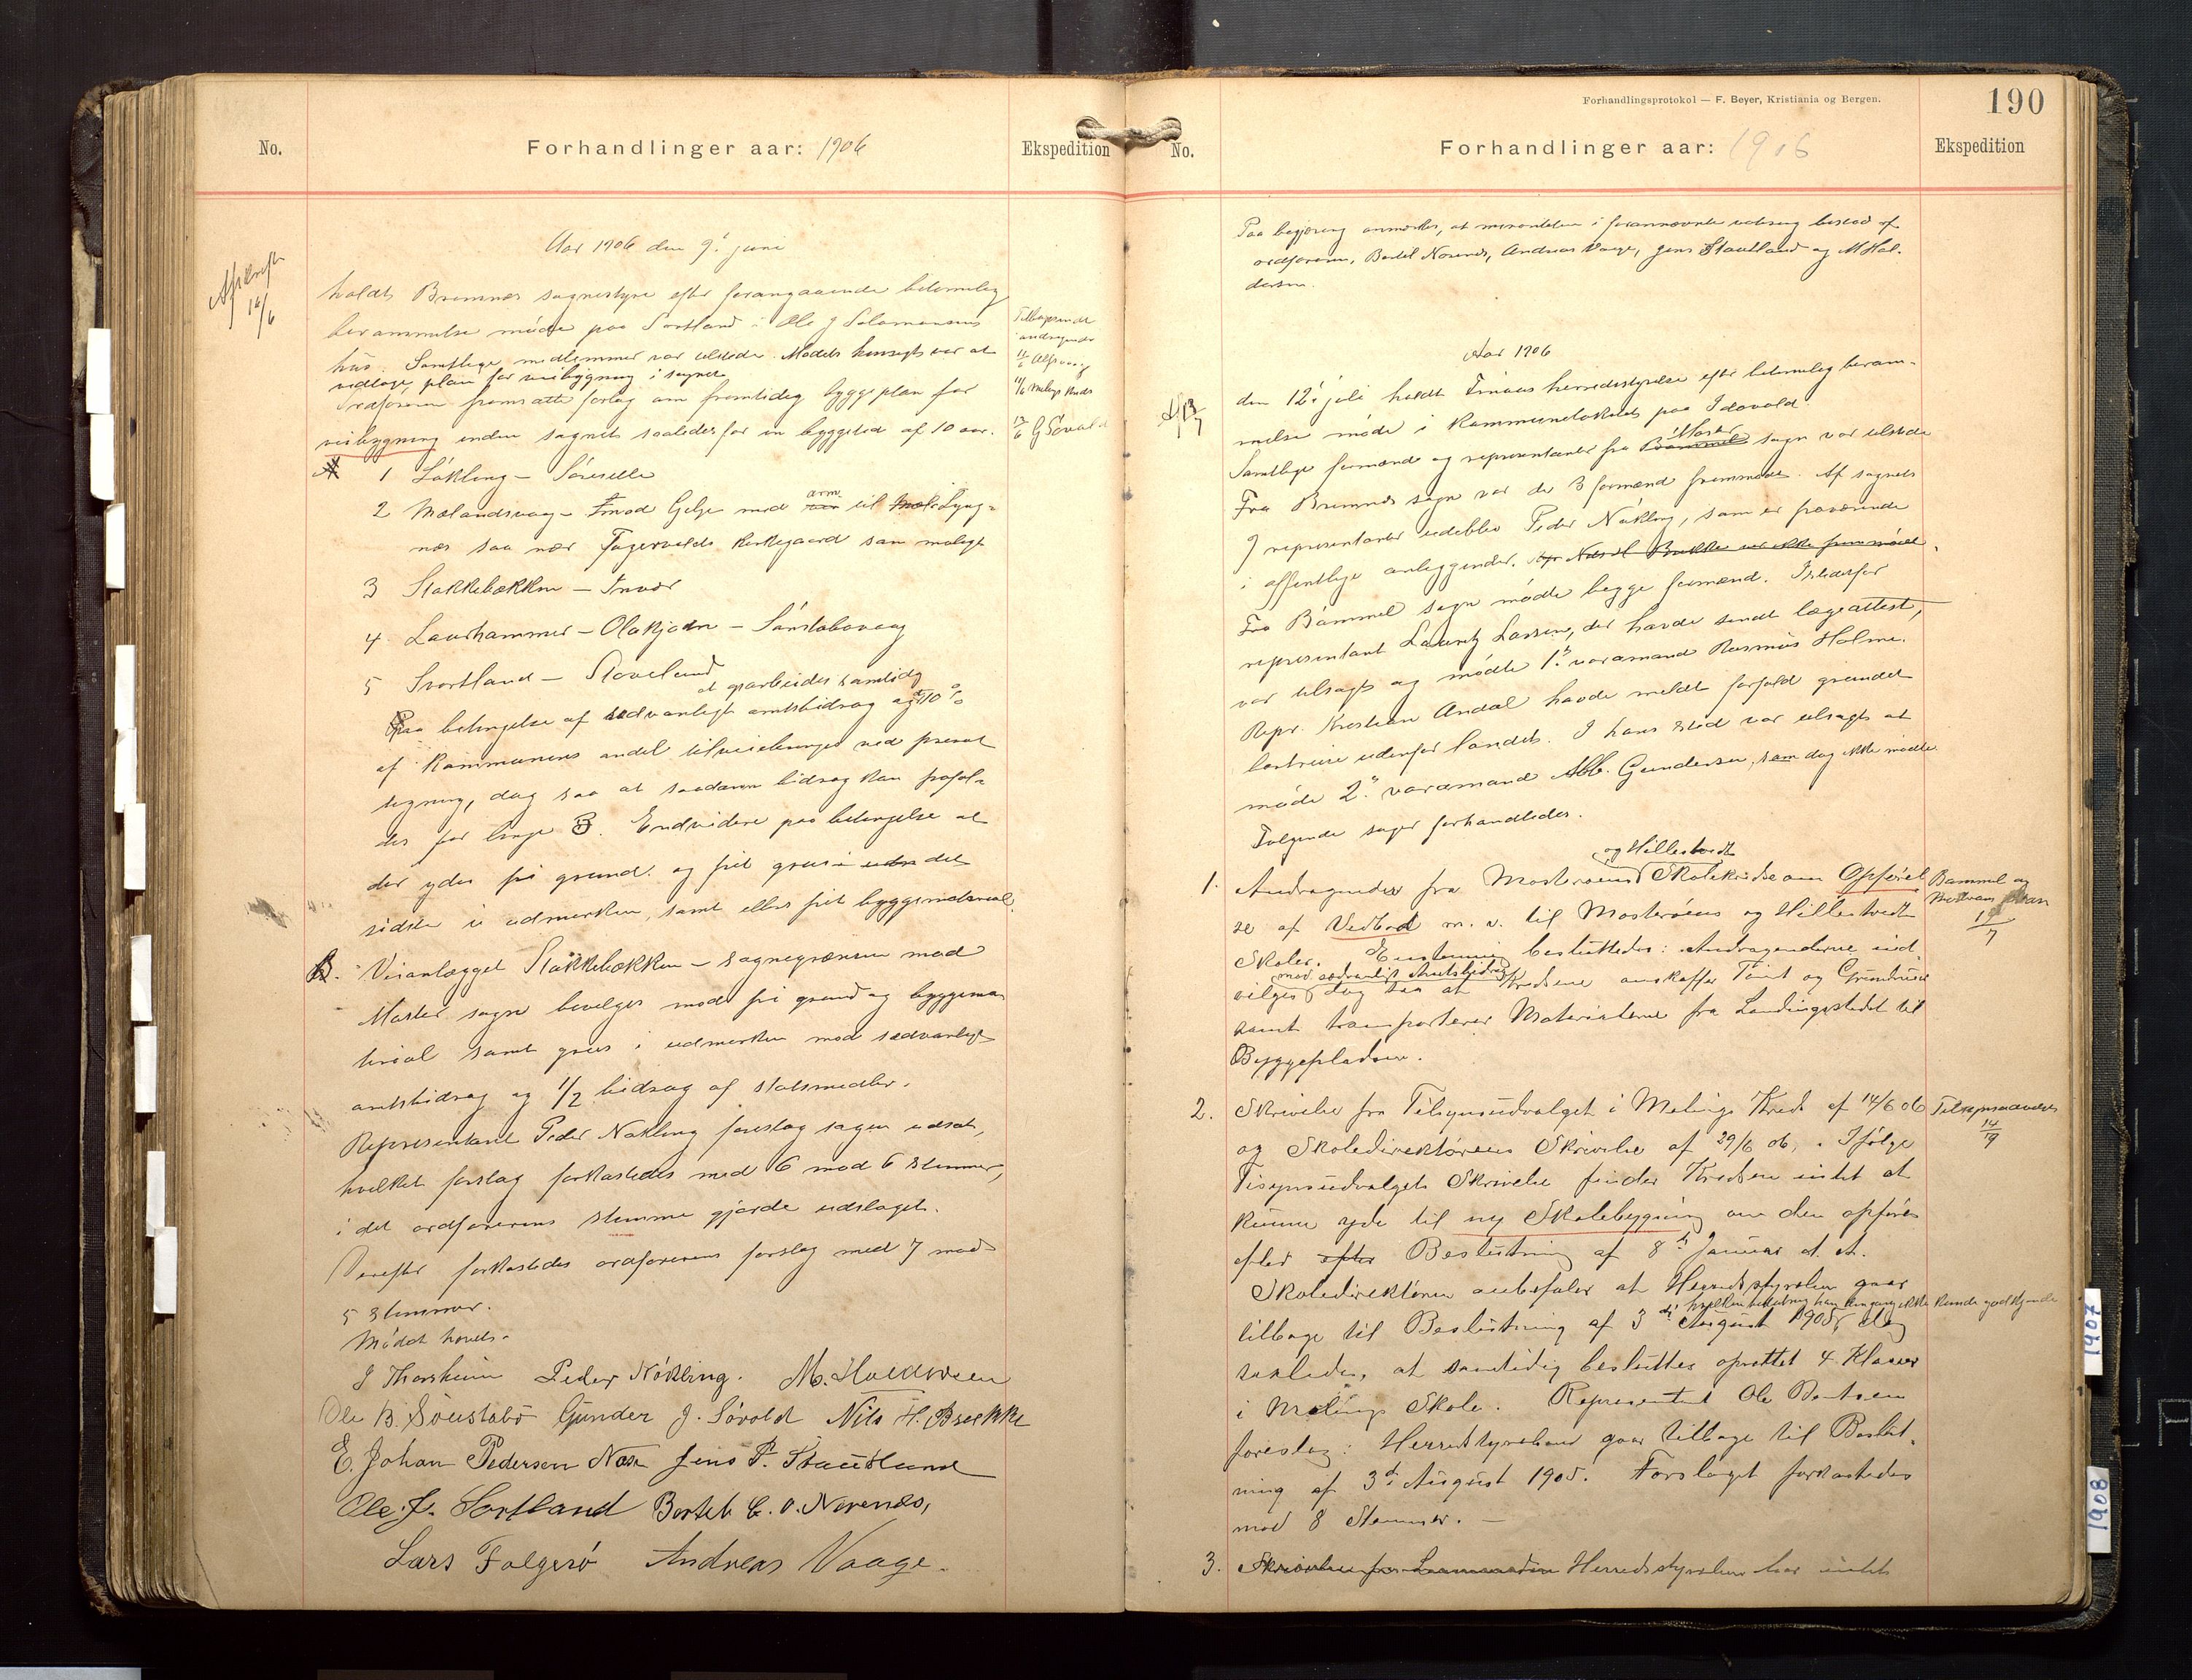 No.
Forhandlinger aar: 1906
Ekspedition
Afskrift
16/6
Aar 1906 den 9. juni
holdt Bremnes sognestyre efter forangaaende betimelig
berammelse møde paa Svortland i Ole J Salamonsens
hus. Samtlige medlemmer var tilstede. Mødets hensigt var at
vedtage plan for veibygning i sognet
Ordføreren fremsatte forslag om fremtidig byggeplan for
veibygning inden sognet saaledes for en byggetid af 10 aar.
11/6 Melings Kreds
13/6 G Søvold
A
1 Løkling – Siresille
2 Mælandsvaag – Innod Gilje med arm til Lyng-
næs saa nær Fagervolds kirkegaard som muligt
3 Stakkebækken – Innvær
4 Laurhammer – Olakjødn – Sønstabovaag
5 Svortland – Stoveland
at oparbeides samtidig
Paa betingelse af sedvanligt amtsbidrag og at 10 %
af Kommunens andel tilveiebringes ved privat
tegning, dog saa at saadann bidrag kan frafal-
des for linje 3. Endvidere paa betingelse at
der ydes fri grund og frit grus i det
sidste i udmarken, samt ellers frit byggemateriale.
B. Veianlægget Stakkebækken – sognegrænsen mod
Moster sogn bevilges mod fri grund og byggema-
teriol samt grus i udmarken mod sedvanligt
amtsbidrag og 1/2 bidrag af statsmedler.
Representant Peder Nøkling foreslog sagen udsat,
hvilket forslag forkastedes med 6 mod 6 stemmer,
i det ordførerens stemme gjorde udslaget.
Derefter forkastedes ordførerens forslag med 7 mod
5 stemmer.
Mødet hævet.
J Thorsheim Peder Nökling. M. Haldorsen
Ole B. Sönstabö Gunder J. Sövold Nils H. Brekke
E. Johan Pedersen Næse Jens P. Stautland
Ole J. Sortland Bertel C. O. Norenes,
Lars Folgerö Andreas Vaage.
Forhandlingsprotokol — F. Beyer, Kristiania og Bergen.
190
No.
Forhandlinger aar: 1906
Ekspedition
Paa begjæring anmerkes, at minoriteten i forannævnte votering bestod af
ordføreren, Bertel Norenes, Andreas Vaage, Jens Stautland og M Hal-
dorsen.
Aar 1906
den 12. juli holdt Finaas herredsstyrelse efter betimelig beram-
melse møde i kommunelokalet paa Idavold.
Samtlige formænd og representanter fra Moster sogn var tilstede
Fra Bremnes sogn var de 3 formænd fremmødt. Af sognets
9 representanter udeblev Peder Nøkling, som er fraværende
i offentlige anliggender. Nils H Brekke var ikke fremmødt.
Fra Bømmel sogn mødte begge formænd. Istedenfor
representant Lauritz Larsen, der havde sendt lægeattest,
var tilsagt og mødte 1. varamand Rasmus Holme.
Repr. Kristian Andal havde meldt forfald grundet
bortreise udenfor landet. I hans sted var tilsagt at
møde 2. varamand Abb. Gundersen, som dog ikke mødte.
Følgende sager forhandledes.
og Hillestvedt
1. Andragender fra Mosterøens Skolekredse om Opførel-
se af Vedbod m. v. til Mosterøens og Hillestvedt
Skoler. Enstemmig besluttedes: Andragenderne ind-
mod sedvanligt Amtsbidrag
vilges, dog saa at Kredsene anskaffer Tomt og Grundmur
samt transporterer Materialerne fra Landingsstedet til
Byggepladsen.
Bømmel og
17/7
2. Skrivelse fra Tilsynsudvalget i Melings Kreds af 14/6 06
og Skoledirektørens Skrivelse af 29/6 06. Ifølge
Tisynsudvalgets Skrivelse finder Kredsen intet at
kunne yde til ny Skolebygning om den opføres
efter efter Beslutning af 8de Januar d. A.
Skoledirektøren anbefaler at Herredsstyrelsen gaar
hvilken beslutning han dengang ikke kunde godkjende
tilbage til Beslutning af 3de August 1905, dog
saaledes, at samtidig besluttes oprettet 4 Klasser
i Melings Skole. Representant Ole Bentsen
foreslog: Herredsstyrelsen gaar tilbage til Beslut-
ning af 3de August 1905. Forslaget forkastedes
mod 8 Stemmer. —
Tilsynsudvalget
14/9
3. Skrivelse fra Herredsstyrelsen har intet
1907
1908